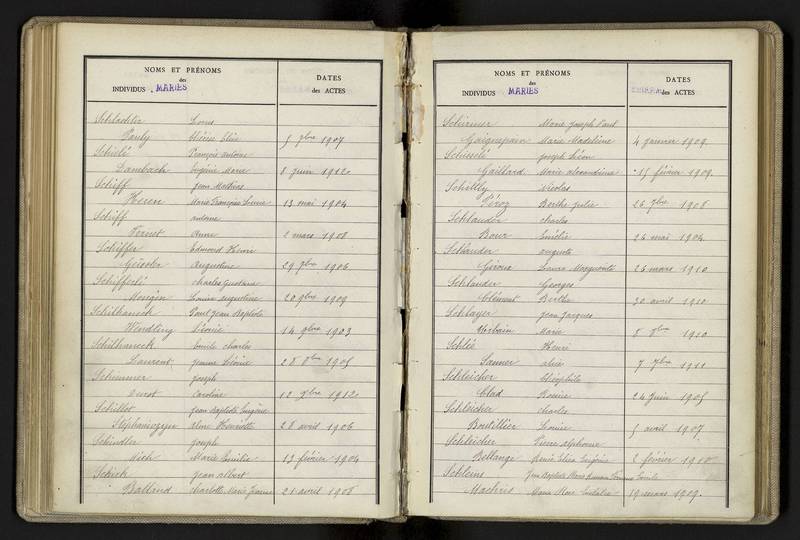 NOMS ET PRÉNOMS
des
INDIVIDUS MARIÉS
DATES
des ACTES
Schlachter Louis
Pauly Marie Elise 5 9bre 1907
Schielé François Antoine
Dambach Eugénie Marie 8 juin 1912
Schiff Jean Mathias
Heuen Marie Françoise Louise 13 mai 1904
Schiff Antoine
Ferret Anne 2 mars 1908
Schiffer Edmond Henri
Geissler Augustine 29 9bre 1906
Schifferlé Charles Gustave
Mougin Louise Augustine 20 9bre 1909
Schilhaneck Paul Jean Baptiste
Wendling Léonie 14 9bre 1903
Schilhaneck Emile Charles
Laurent Jeanne 28 8bre 1905
Schimmer Joseph
Durot Caroline 12 9bre 1912
Schillot Jean Baptiste Eugène
Stephaniczyn Aline Henriette 28 avril 1906
Schindler Joseph
Mich Marie Emilie 13 février 1904
Schick Jean Albert
Balland Charlotte Marie Jeanne 21 avril 1908
NOMS ET PRÉNOMS
des
INDIVIDUS MARIÉS
DATES
des ACTES
Schirmer Marie Joseph Paul
Gaignepain Marie Madeleine 4 janvier 1909
Joseph Léon
Gaillard Marie Alexandrine 15 février 1909
Schilly Nicolas
Péroz Berthe Julie 26 7bre 1908
Schlauder Charles
Bour Emélie 26 mai 1904
Schlauder Auguste
Giroux Laure Marguerite 26 mars 1910
Schlauder Georges
Clément Berthe 30 avril 1910
Schlayer Jean Jacques
Urbain Marie 8 8bre 1910
Schlée Henri
Sauner Alice 7 7bre 1911
Schleicher Théophile
Clad Rosine 24 juin 1905
Schleicher Charles
Boutillier Louise 5 avril 1907
Schleicher Pierre Alphonse
Bellange Renée Elisa 2 février 1910
Schleins Jean Baptiste Marie
Machris Marie Rose Eulalie 19 mars 1909